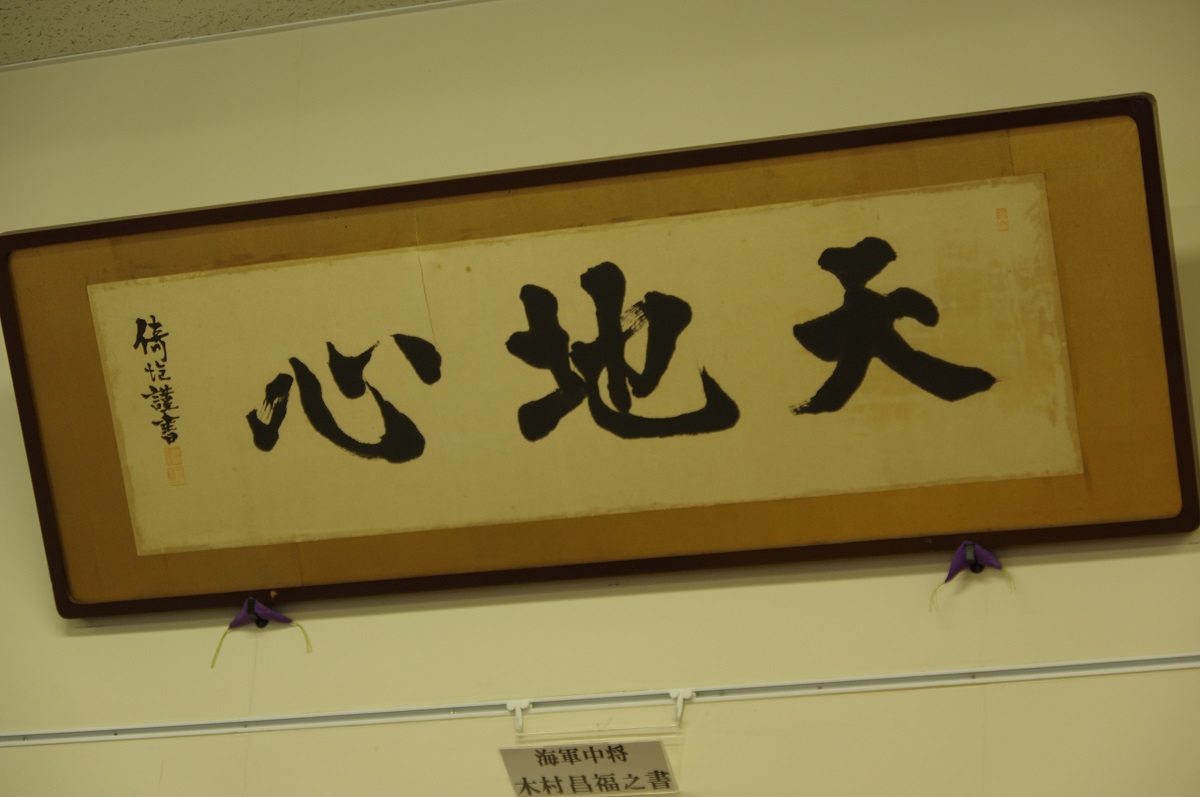 天地心
倚岂謹書
海軍中将
木村昌福之書